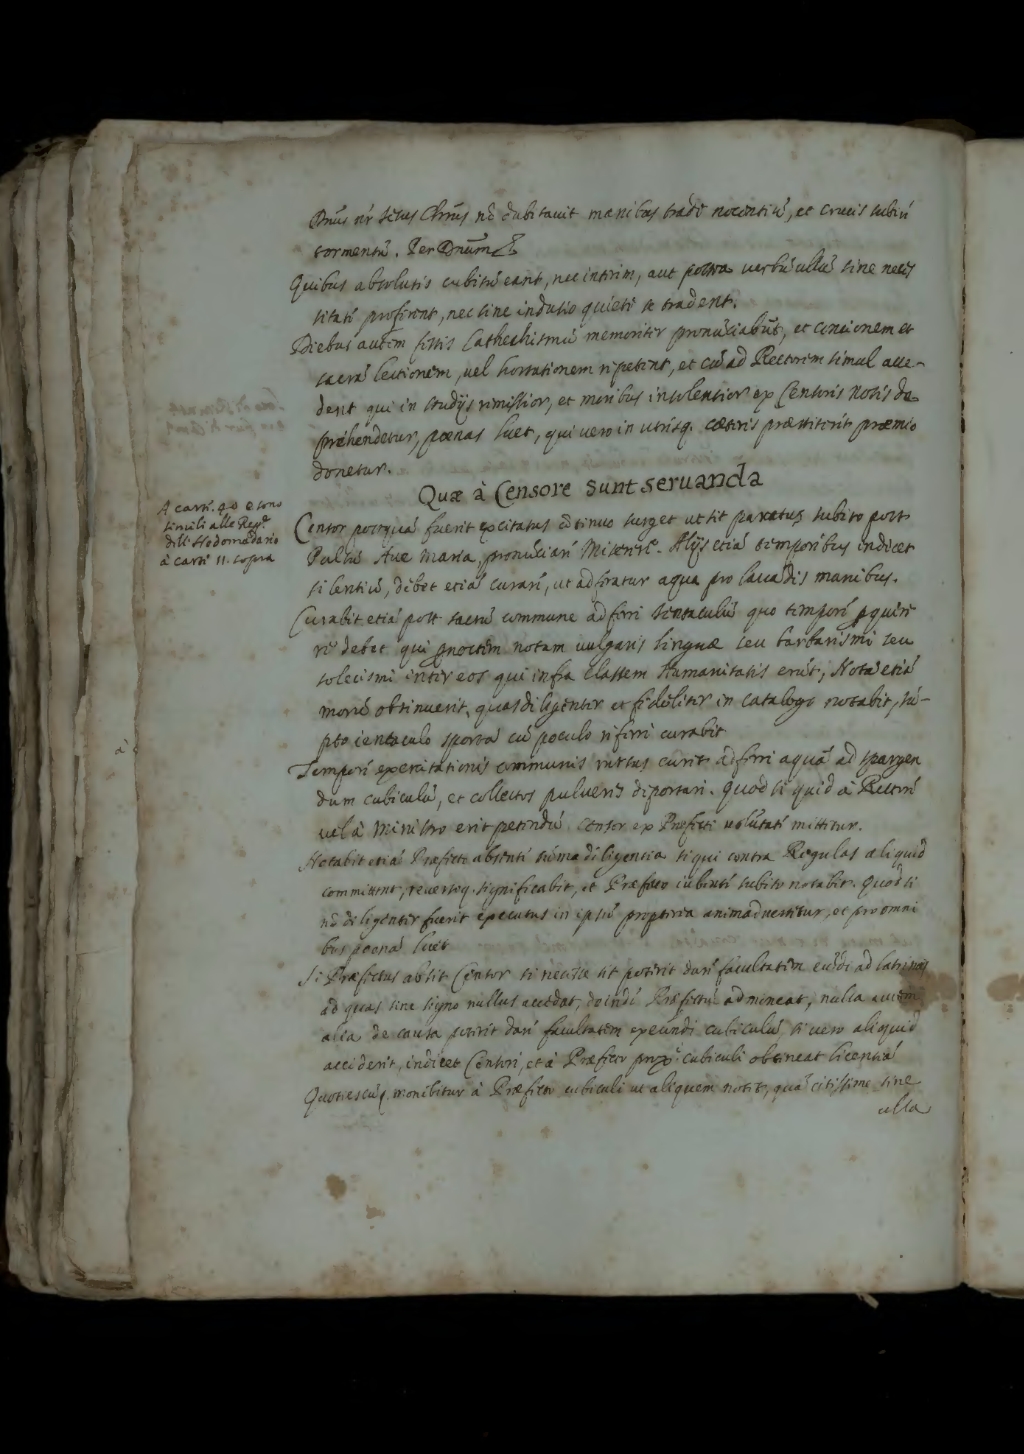 Dnus nr̃ Iesus Chrus nõ dubitauit manibus tradi nocentiũ, et crucis subiri
tormentũ. Per Dnum &
Quibus absolutis cubitũ eant, nec intirim, aut postea uerbũ ullũ sine neces
sitati proferent, nec sine indusio quieti se tradent.
Diebus autem festis Cathechismũ memoriter pronũciabũt, et concionem et
sacrã lectionem, uel hortationem repetent, et cũ ad Rectorem simul acce-
dent qui in studijs remissior, et moribus insolentior ex Censoris notis de-
prehendetur, pœnas luet, qui uero in utrisq. cæteris præstiterit præmio
donetur.
Quæ à Censore sunt seruanda
A cart. 40 e sono
simili alle Reg.e
dell' Hedomadario
à cart. 11. sopra
Censor postquã fuerit excitatus cõtinuo surget ut sit paratus subito post
Pulsũ Aue Maria, pronũciari Miserere. Alijs etiã temporibus indicet
silentiũ, debet etiã curari, ut adferatur aqua pro lauãdis manibus.
Curabit etiã post sacrũ commune adferri ientaculũ quo tempori pquiri
re debet qui pnoctem notam uulgaris linguæ seu barbarismi seu
solecismi inter eos qui infra classem Humanitatis erũt, Notã etiã
morũ obtinuerit, quas diligenter et fideliter in catalogo notabit, sũ-
pto ientaculo sportã cũ poculo riferri curabit
Tempori exercitationis communis rursus curit adferri aquã ad spargen
dum cubiculũ, et collectos pulueris diportari. Quod si quid à Rectori
uel à Ministro erit petendũ Censor ex Præfecti uolũtati mittitur.
Notabit etiã Præfecto absenti sũma diligentia siqui contra Regulas aliquid
committent, reuersoq. significabit, et Præfecto iubenti subito notabit. Quod si
nõ diligenter fuerit executus in ipsũ propterea animaduertitur, et pro omni
bus poenã luet
Si Præfectus absit Censor si necesse sit poterit dari facultatem eũdi ad latrinas
ad quas sine signo nullus accedat, deindi Præfectũ admoneat, nulla autem
alia de causa poterit dari facultatem exeundi cubiculũ si uero aliquid
acciderit, indicet Censori, et à Præfecto proxi cubiculi obtineat licentiã
Quotiescũq. monibitur à Præfecto cubiculi ut aliquem notit, quã citissime sine
ulla